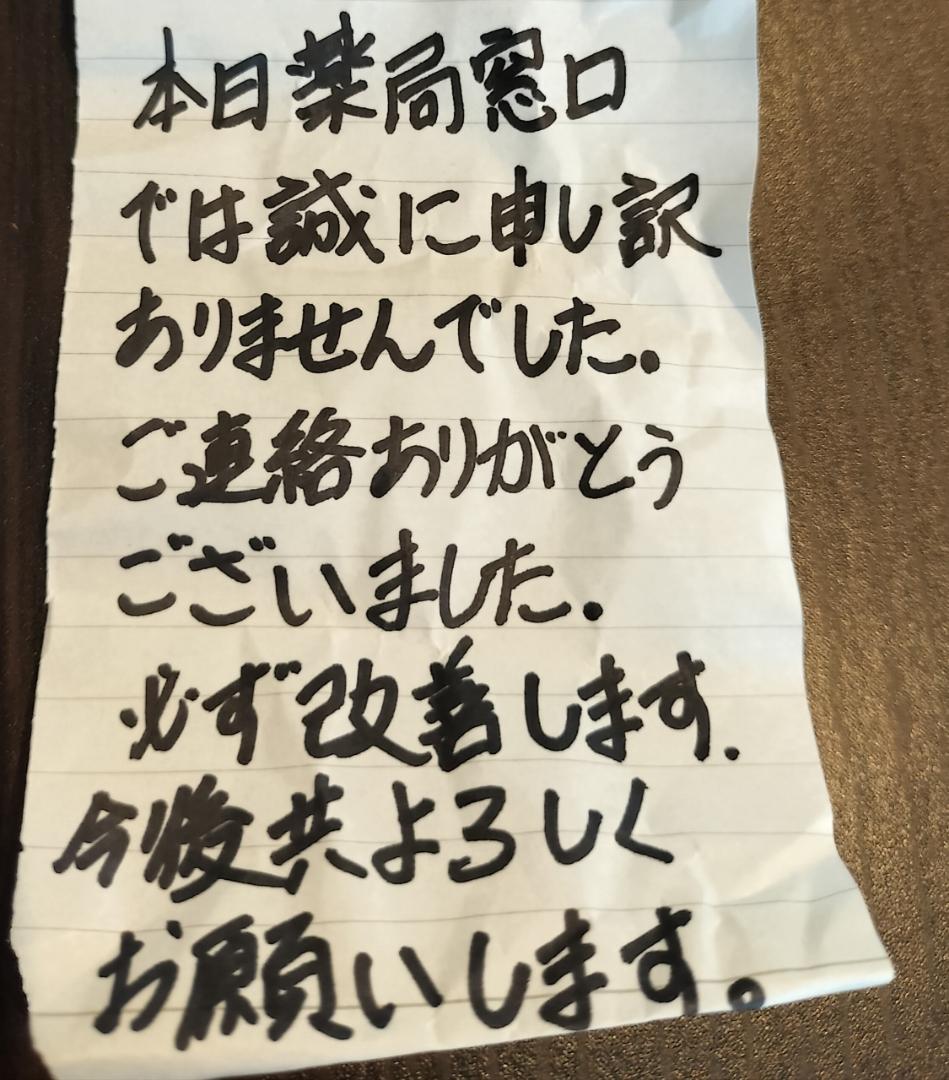 本日薬局窓口
では誠に申し訳
ありませんでした.
ご連絡ありがとう
ございました.
必ず改善します.
今後共よろしく
お願いします。